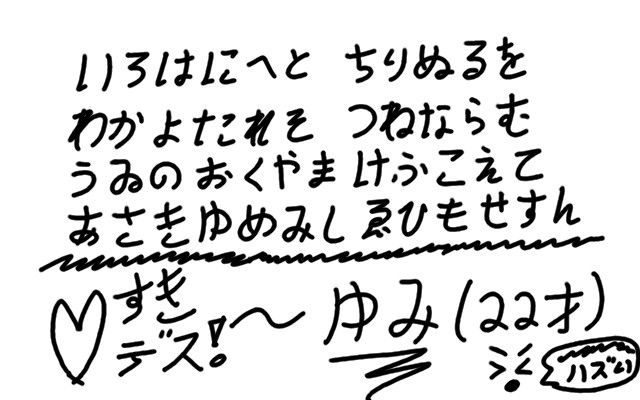 いろはにへと ちりぬるを
わかよたれそ つねならむ
うゐのおくやま けふこえて
あさきゆめみし ゑひもせすん
♡すき
デス!〜 ゆみ(22才)
ハズい